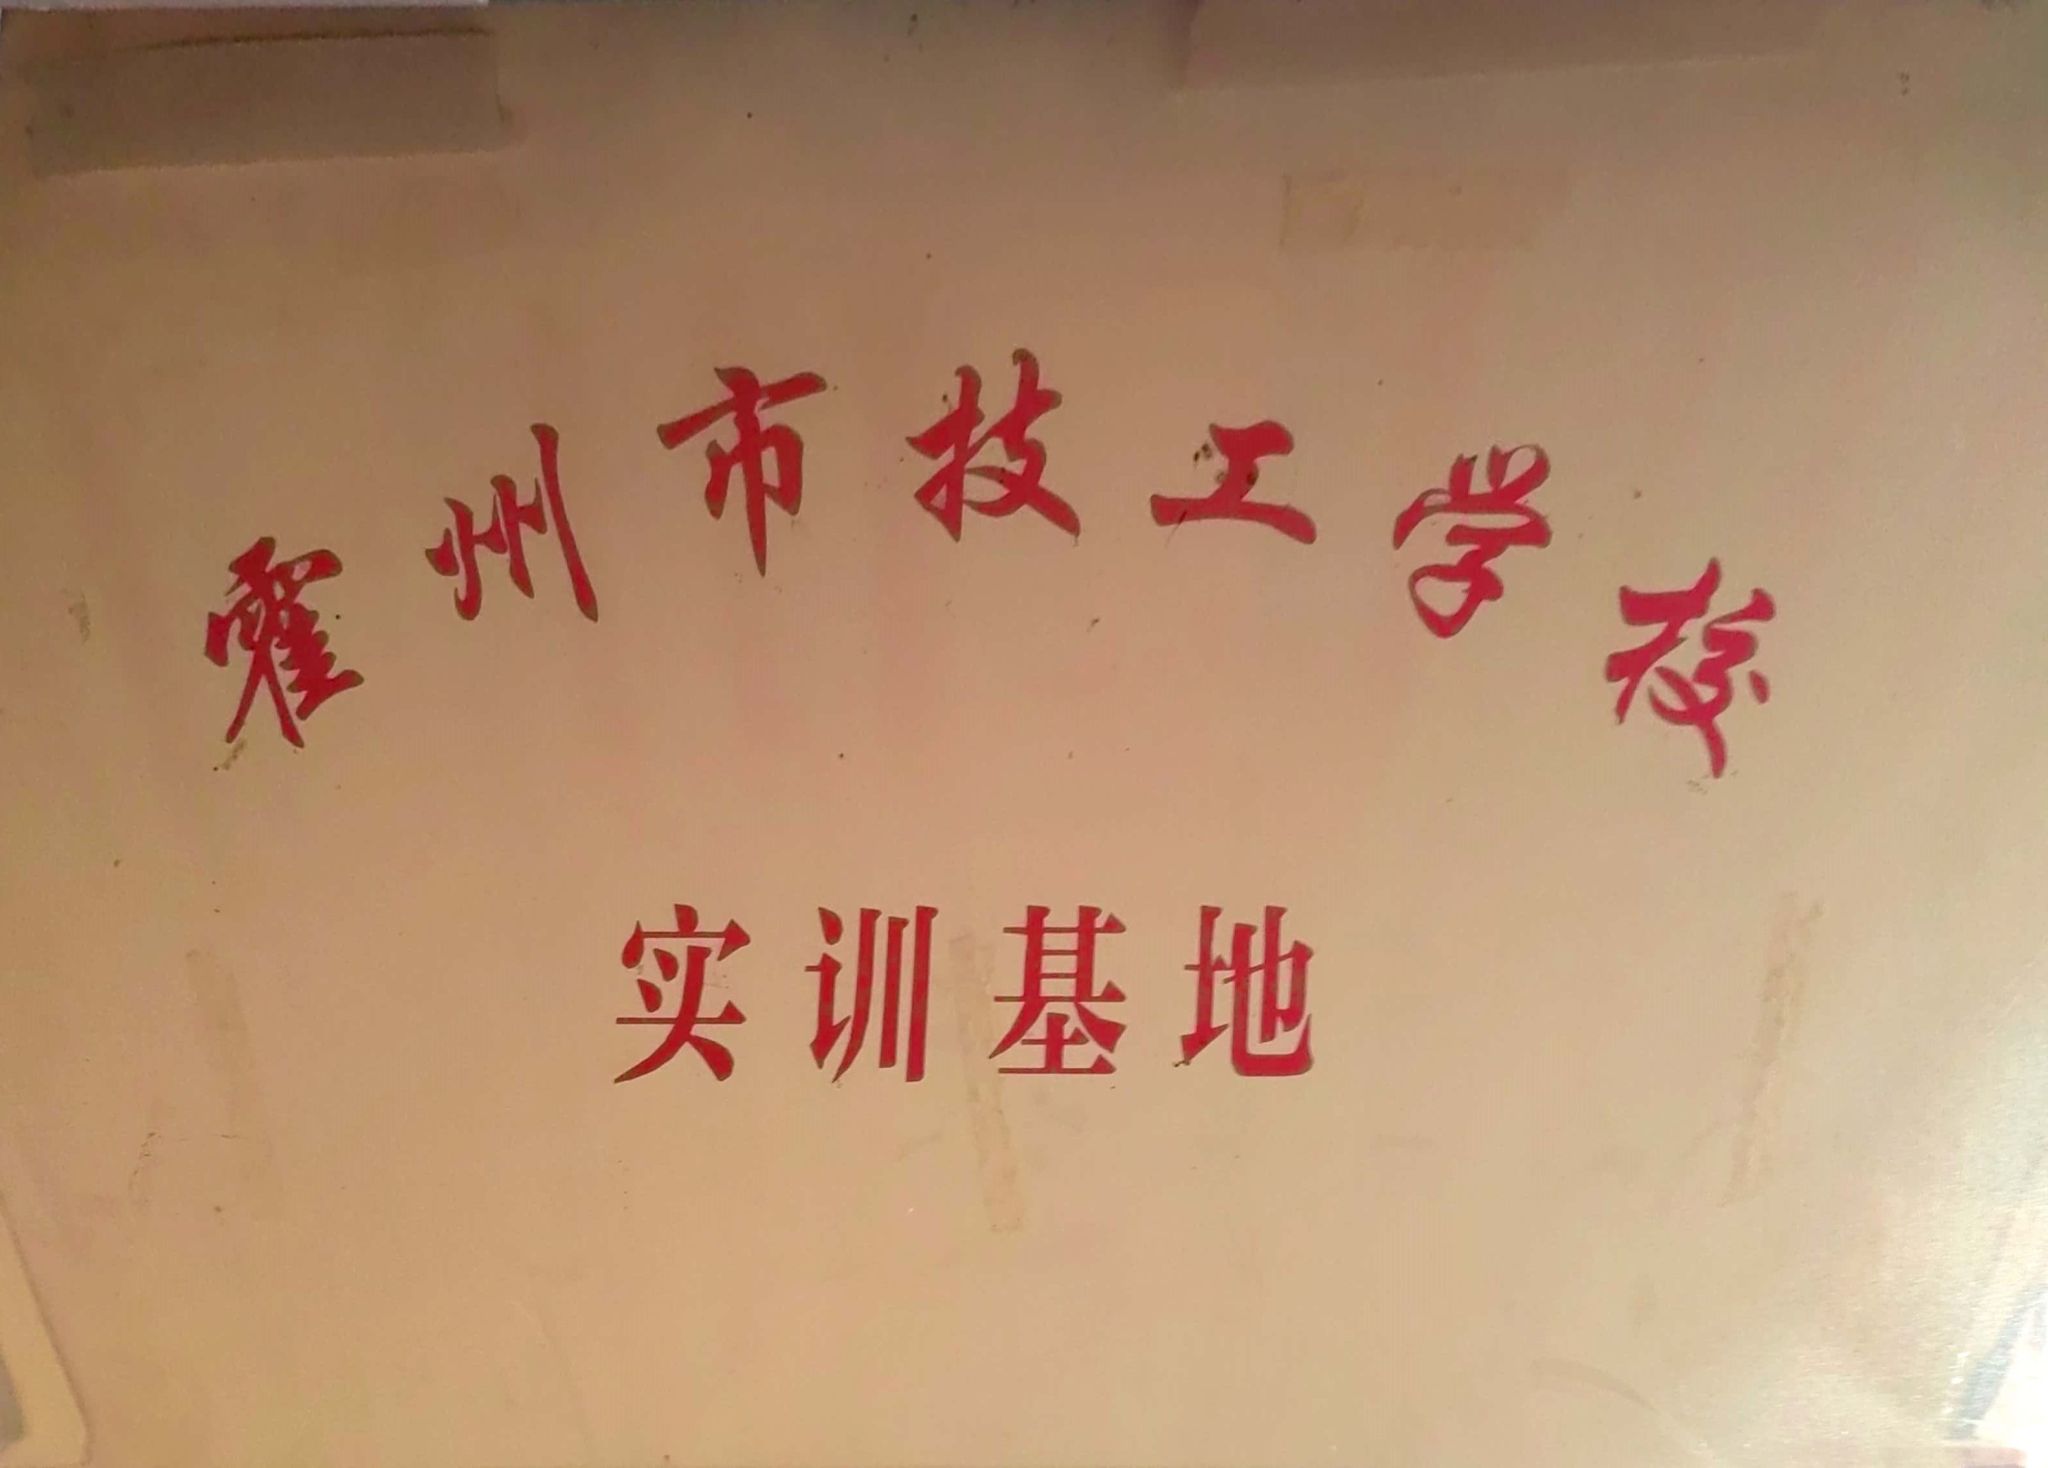 霍州市技工学校
实训基地